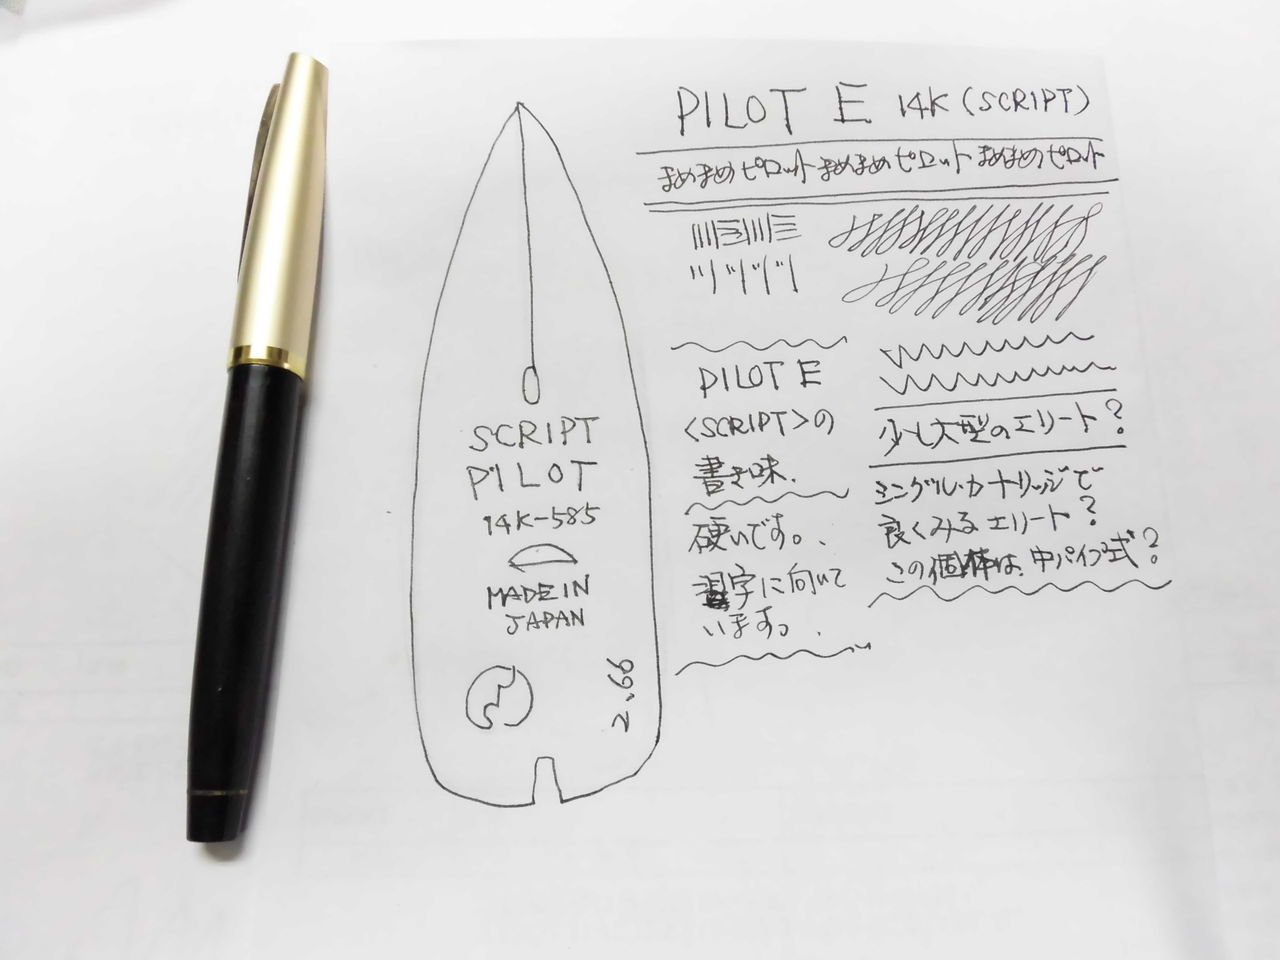 PILOT E 14K (SCRIPT)
まめまめピロットまめまめピロットまめまめピロット
SCRIPT
PILOT
14K-585
MADE IN
JAPAN
2.66
PILOT E
<SCRIPT>の
書き味.
硬いです。.
習字に向いて
います。.
少し大型のエリート?
シングル・カートリッジで
良くみるエリート?
この個体は、中パイプ式?